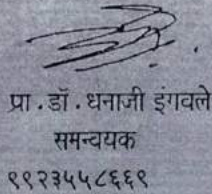 प्रा. डॉ. धनाजी इंगवले
समन्वयक
९९२३५५८६६९